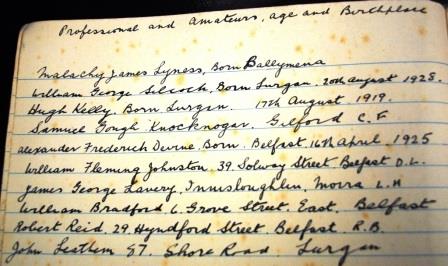 Professional and Amateurs, age and Birthplace
Malachy James Lyness, Born Ballymena
William George Silcock, Born Lurgan. 20th August 1928.
Hugh Kelly. Born Lurgan. 17th August. 1919.
Samuel Gough Knocknogar, Gilford C.F
Alexander Frederich Devine. Born. Belfast. 16th April. 1925
William Fleming Johnston. 39. Solway Street Belfast D.L.
James George Lavery. Innisloughlin, Moira L.H
William Bradford, 6. Grove Street. East. Belfast
Robert Reid. 29. Hyndford Street Belfast. R.B.
John Leathem 87. Shore Road Lurgan